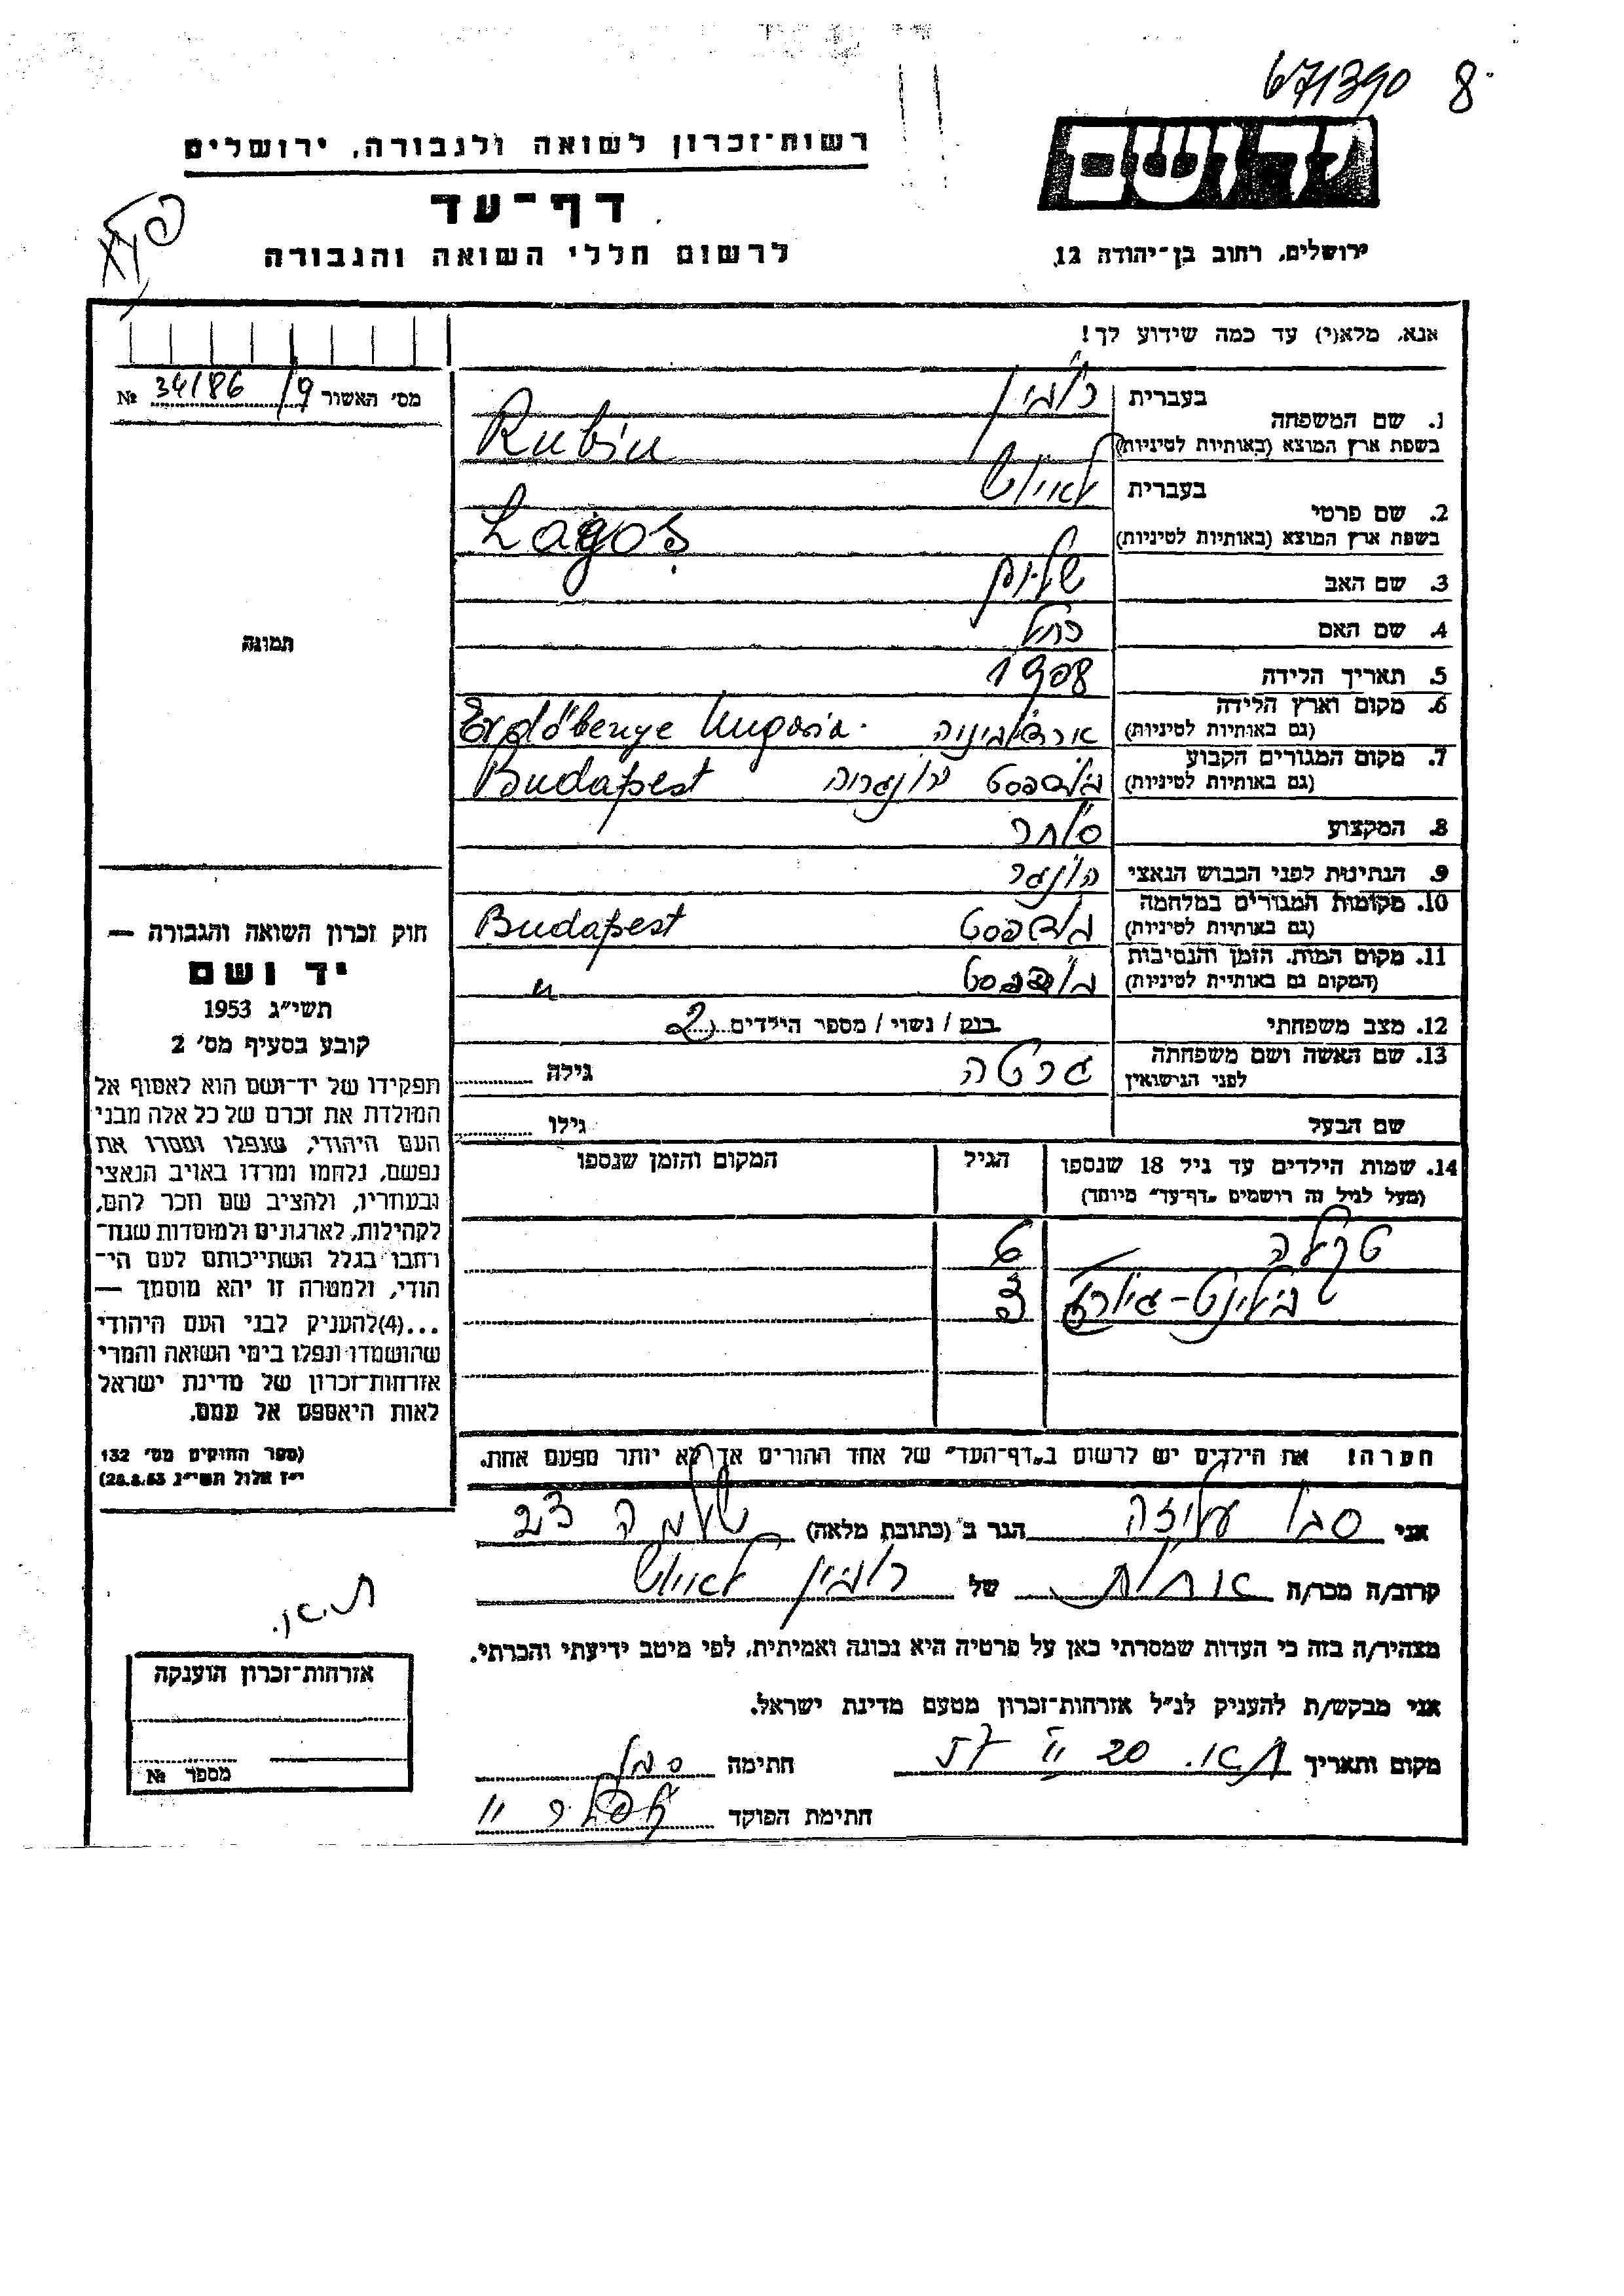 671390 8
יד ושם
ירושלים, רחוב בן־יהודה 12
רשות־זכרון לשואה ולגבורה, ירושלים
דף־עד
לרשום חללי השואה והגבורה
אנא, מלא(י) עד כמה שידוע לך!
מס' האשור 9/ 34186 №
תמונה
1. שם המשפחה
בעברית רובין
בשפת ארץ המוצא (באותיות לטיניות) Rubin
2. שם פרטי
בעברית לאיוש
בשפת ארץ המוצא (באותיות לטיניות) Lagos
3. שם האב שלום
4. שם האם רחל
5. תאריך הלידה 1908
6. מקום וארץ הלידה
(גם באותיות לטיניות) Erdőbenye
7. מקום המגורים הקבוע
(גם באותיות לטיניות) בודפסט Budapest
8. המקצוע סוחר
9. הנתינות לפני הכבוש הנאצי הונגר
10. מקומות המגורים במלחמה
(גם באותיות לטיניות) בודפסט Budapest
11. מקום המות, הזמן והנסיבות
(המקום גם באותיות לטיניות) בודפסט "
12. מצב משפחתי רווק / נשוי / מספר הילדים 2
13. שם האשה ושם משפחתה
לפני הנישואין גרטה גילה
שם הבעל גילו
14. שמות הילדים עד גיל 18 שנספו
(מעל לגיל זה רושמים „דף־עד" מיוחד)
הגיל
המקום והזמן שנספו
6
3
הערה! את הילדים יש לרשום ב„דף־העד" של אחד ההורים אך לא יותר מפעם אחת.
חוק זכרון השואה והגבורה —
יד ושם
תשי"ג 1953
קובע בסעיף מס' 2
תפקידו של יד־ושם הוא לאסוף אל
המולדת את זכרם של כל אלה מבני
העם היהודי, שנפלו ומסרו את
נפשם, נלחמו ומרדו באויב הנאצי
ובעוזריו, ולהציב שם וזכר להם,
לקהילות, לארגונים ולמוסדות שנח־
רחבו בגלל השתייכותם לעם הי־
הודי, ולמטרה זו יהא מוסמך —
...(4)להעניק לבני העם היהודי
שהושמדו ונפלו בימי השואה והמרי
אזרחות־זכרון של מדינת ישראל
לאות היאספם אל עמם.
(ספר החוקים מס' 132
י"ז אלול תשי"ג 28.8.53)
אני סגל עליזה הגר ב (כתובת מלאה) שלמה 23
קרוב/ה מכר/ה אחות של רובין לאיוש
מצהיר/ה בזה כי העדות שמסרתי כאן על פרטיה היא נכונה ואמיתית, לפי מיטב ידיעתי והכרתי.
אני מבקש/ת להעניק לנ"ל אזרחות־זכרון מטעם מדינת ישראל.
מקום ותאריך ת.א. 20 חתימה סגל
חתימת הפוקד
ת.א.
אזרחות־זכרון הוענקה
מספר №